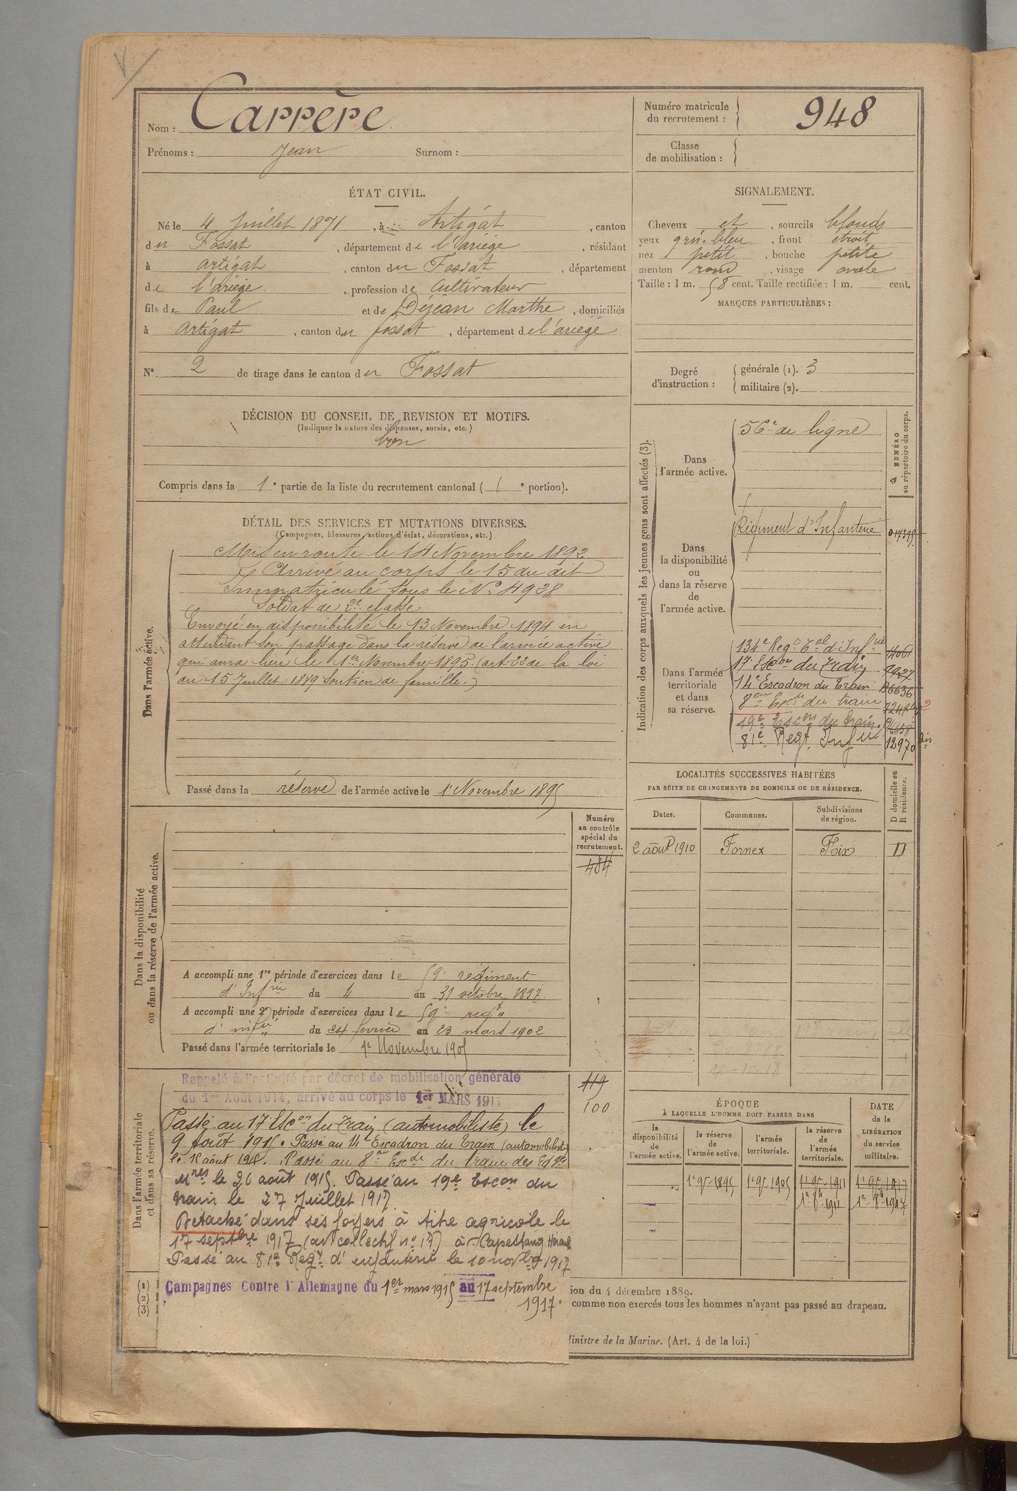 Nom : Carrère
Prénoms : Jean Surnom :
Numéro matricule du recrutement : 948
Classe de mobilisation :
ÉTAT CIVIL.
Né le 4 Juillet 1871, à Artigat, canton
du Fossat, département de l'Ariège, résidant
à Artigat, canton du Fossat, département
de l'ariège, profession de Cultivateur
fils de Paul et de Déjean Marthe, domiciliés
à Artigat, canton du fossat, département de l'ariège
N° 2 de tirage dans le canton du Fossat
SIGNALEMENT.
Cheveux et, sourcils blonds
yeux gris-bleu, front étroit
nez petit, bouche petite
menton rond, visage ovale
Taille : 1 m. 58 cent. Taille rectifiée : 1 m. cent.
MARQUES PARTICULIÈRES :
Degré d'instruction : générale (1). 3
militaire (2).
DÉCISION DU CONSEIL DE REVISION ET MOTIFS.
(Indiquer la nature des dispenses, sursis, etc.)
bon
Compris dans la 1e partie de la liste du recrutement cantonal ( 1e portion).
DÉTAIL DES SERVICES ET MUTATIONS DIVERSES.
(Campagnes, blessures, actions d'éclat, décorations, etc.)
Dans l'armée active.
Mis en route le 14 Novembre 1892
Arrivé au corps le 15 du dit
Immatriculé sous le N° 4938
Soldat de 2e classe
Envoyé en disponibilité le 13 Novembre 1894 en
attendant son passage dans la réserve de l'armée active
qui aura lieu le 1er Novembre 1895 (art de la loi
du 15 Juillet 1889 Soutien de famille.)
Passé dans la réserve de l'armée active le 1 Novembre 1895
Indication des corps auxquels les jeunes gens sont affectés (3).
NUMÉRO au répertoire du corps.
Dans l'armée active.
56e de ligne
Dans la disponibilité ou dans la réserve de l'armée active.
Régiment d'Infanterie
Dans l'armée territoriale et dans sa réserve.
134e Regt Tal d'Infrie
17 Escon du Train
14e Escadron du Train
8e du train
19e Escon du train
81e Regt Infie 12970 bis
LOCALITÉS SUCCESSIVES HABITÉES
PAR SUITE DE CHANGEMENTS DE DOMICILE OU DE RÉSIDENCE.
Dates. Communes. Subdivisions de région. D domicile ou R résidence.
2 août 1910 Fornex Foix D
Dans la disponibilité ou dans la réserve de l'armée active.
Numéro au contrôle spécial du recrutement.
484
A accompli une 1re période d'exercices dans le 59e regiment
d'Infrie du 4 au 31 octobre 1897
A accompli une 2e période d'exercices dans le 59e regt
d'infie du 24 février au 23 mars 1902
Passé dans l'armée territoriale le 1er Novembre 1905
Dans l'armée territoriale et dans sa réserve.
119
100
Rappelé à l'activité par décret de mobilisation générale
du 1er Août 1914, arrivé au corps le 1er MARS 1915
Passé au 17 Escon du Train (automobiliste) le
9 août 1915. Passé au 14e Escadron du Train (automobilist
le 18 août 1915. Passé au 8e du train des
le 20 août 1915. Passé au 19e Escon du
train le 27 Juillet 1917
Detaché dans ses foyers à titre agricole le
17 septbre 1917 (av collectif n° 17) à Capestang Hérault
Passé au 81e Regt d'infanterie le 10 novbre 1917
Campagnes Contre l'Allemagne du 1er mars 1915 au 17 septembre
1917.
(1)
(2)
(3)
ÉPOQUE
À LAQUELLE L'HOMME DOIT PASSER DANS
la disponibilité de l'armée active. la réserve de l'armée active. l'armée territoriale. la réserve de l'armée territoriale.
DATE de la LIBÉRATION du service militaire.
1er 9bre 1895 1er 9bre 1905 1er 9bre 1911 1er 9bre 1917
ion du 4 décembre 1889.
comme non exercés tous les hommes n'ayant pas passé au drapeau.
Ministre de la Marine. (Art. 4 de la loi.)